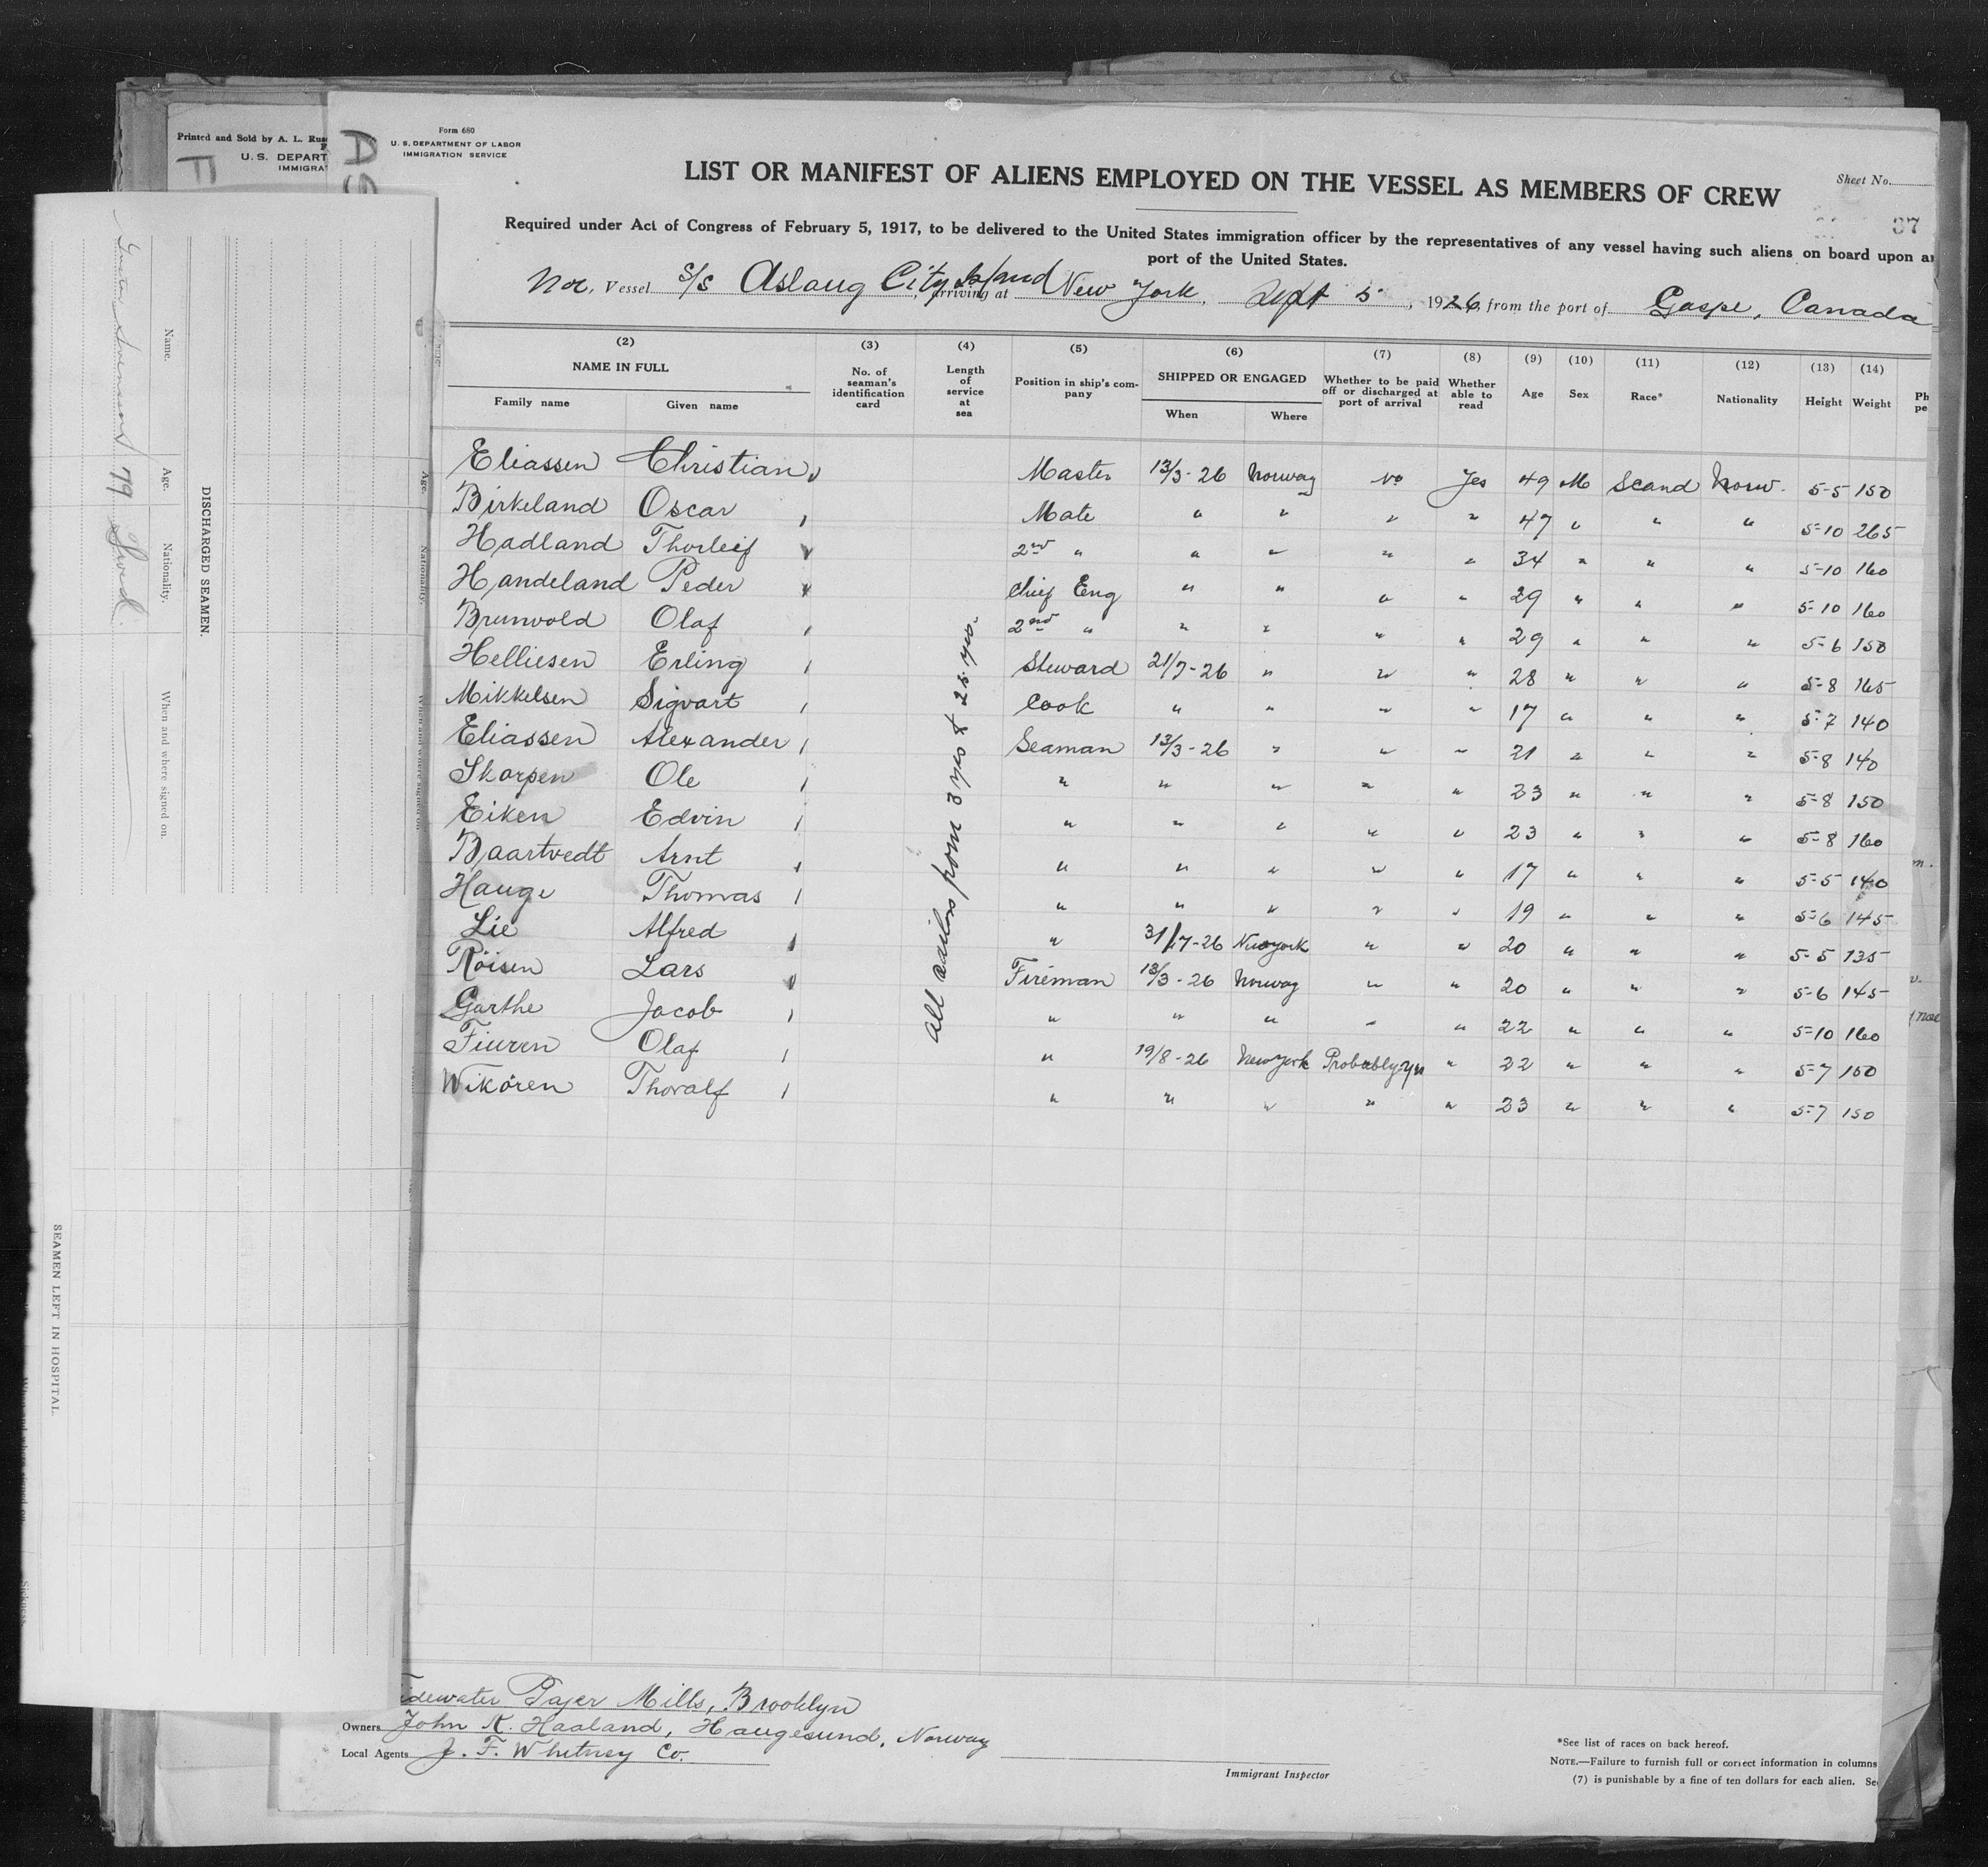 Printed and Sold by A. L. Rus
U. S. DEPART
IMMIGRA
Form 680
U. S. DEPARTMENT OF LABOR
IMMIGRATION SERVICE
LIST OR MANIFEST OF ALIENS EMPLOYED ON THE VESSEL AS MEMBERS OF CREW
Sheet No.
37
Required under Act of Congress of February 5, 1917, to be delivered to the United States immigration officer by the representatives of any vessel having such aliens on board upon
port of the United States.
Nor. Vessel S/S Aslaug City Island, arriving at New York, Sept 5, 1926, from the port of Gaspe, Canada
(2) (3) (4) (5) (6) (7) (8) (9) (10) (11) (12) (13) (14)
NAME IN FULL No. of seaman's identification card Length of service at sea Position in ship's company SHIPPED OR ENGAGED Whether to be paid off or discharged at port of arrival Whether able to read Age Sex Race* Nationality Height Weight
Family name Given name When Where
Eliassen Christian Master 13/3-26 Norway No Yes 49 M Scand Norw. 5-5 150
Birkeland Oscar Mate " " " " 47 " " " 5-10 265
Hadland Thorleif 2nd " " " " " 34 " " " 5-10 160
Handeland Peder Chief Eng " " " " 29 " " " 5-10 160
Brunvold Olaf 2nd " " " " " 29 " " " 5-6 150
Helliesen Erling Steward 21/7-26 " " " 28 " " " 5-8 165
Mikkelsen Sigvart Cook " " " " 17 " " " 5-7 140
Eliassen Alexander Seaman 13/3-26 " " " 21 " " " 5-8 140
Skorpen Ole " " " " " 23 " " " 5-8 150
Eiken Edvin " " " " " 23 " " " 5-8 160
Baartvedt Arnt " " " " " 17 " " " 5-5 140
Hauge Thomas " " " " " 19 " " " 5-6 145
Lie Alfred " 31/7-26 New York " " 20 " " " 5-5 135
Röisen Lars Fireman 13/3-26 Norway " " 20 " " " 5-6 145
Garthe Jacob " " " " " 22 " " " 5-10 160
Fiuren Olaf " 19/8-26 New York Probably yes " 22 " " " 5-7 150
Wikören Thoralf " " " " " 23 " " " 5-7 150
all sailors from 3 yrs to 25 yrs.
idewater Paper Mills, Brooklyn
Owners John K. Haaland, Haugesund, Norway
Local Agents J. F. Whitney Co.
Immigrant Inspector
*See list of races on back hereof.
NOTE.—Failure to furnish full or correct information in columns
(7) is punishable by a fine of ten dollars for each alien. Se
DISCHARGED SEAMEN.
Name. Age. Nationality. When and where signed on.
Gustav Svenson 49 Swed.
SEAMEN LEFT IN HOSPITAL.
Age. Nationality.